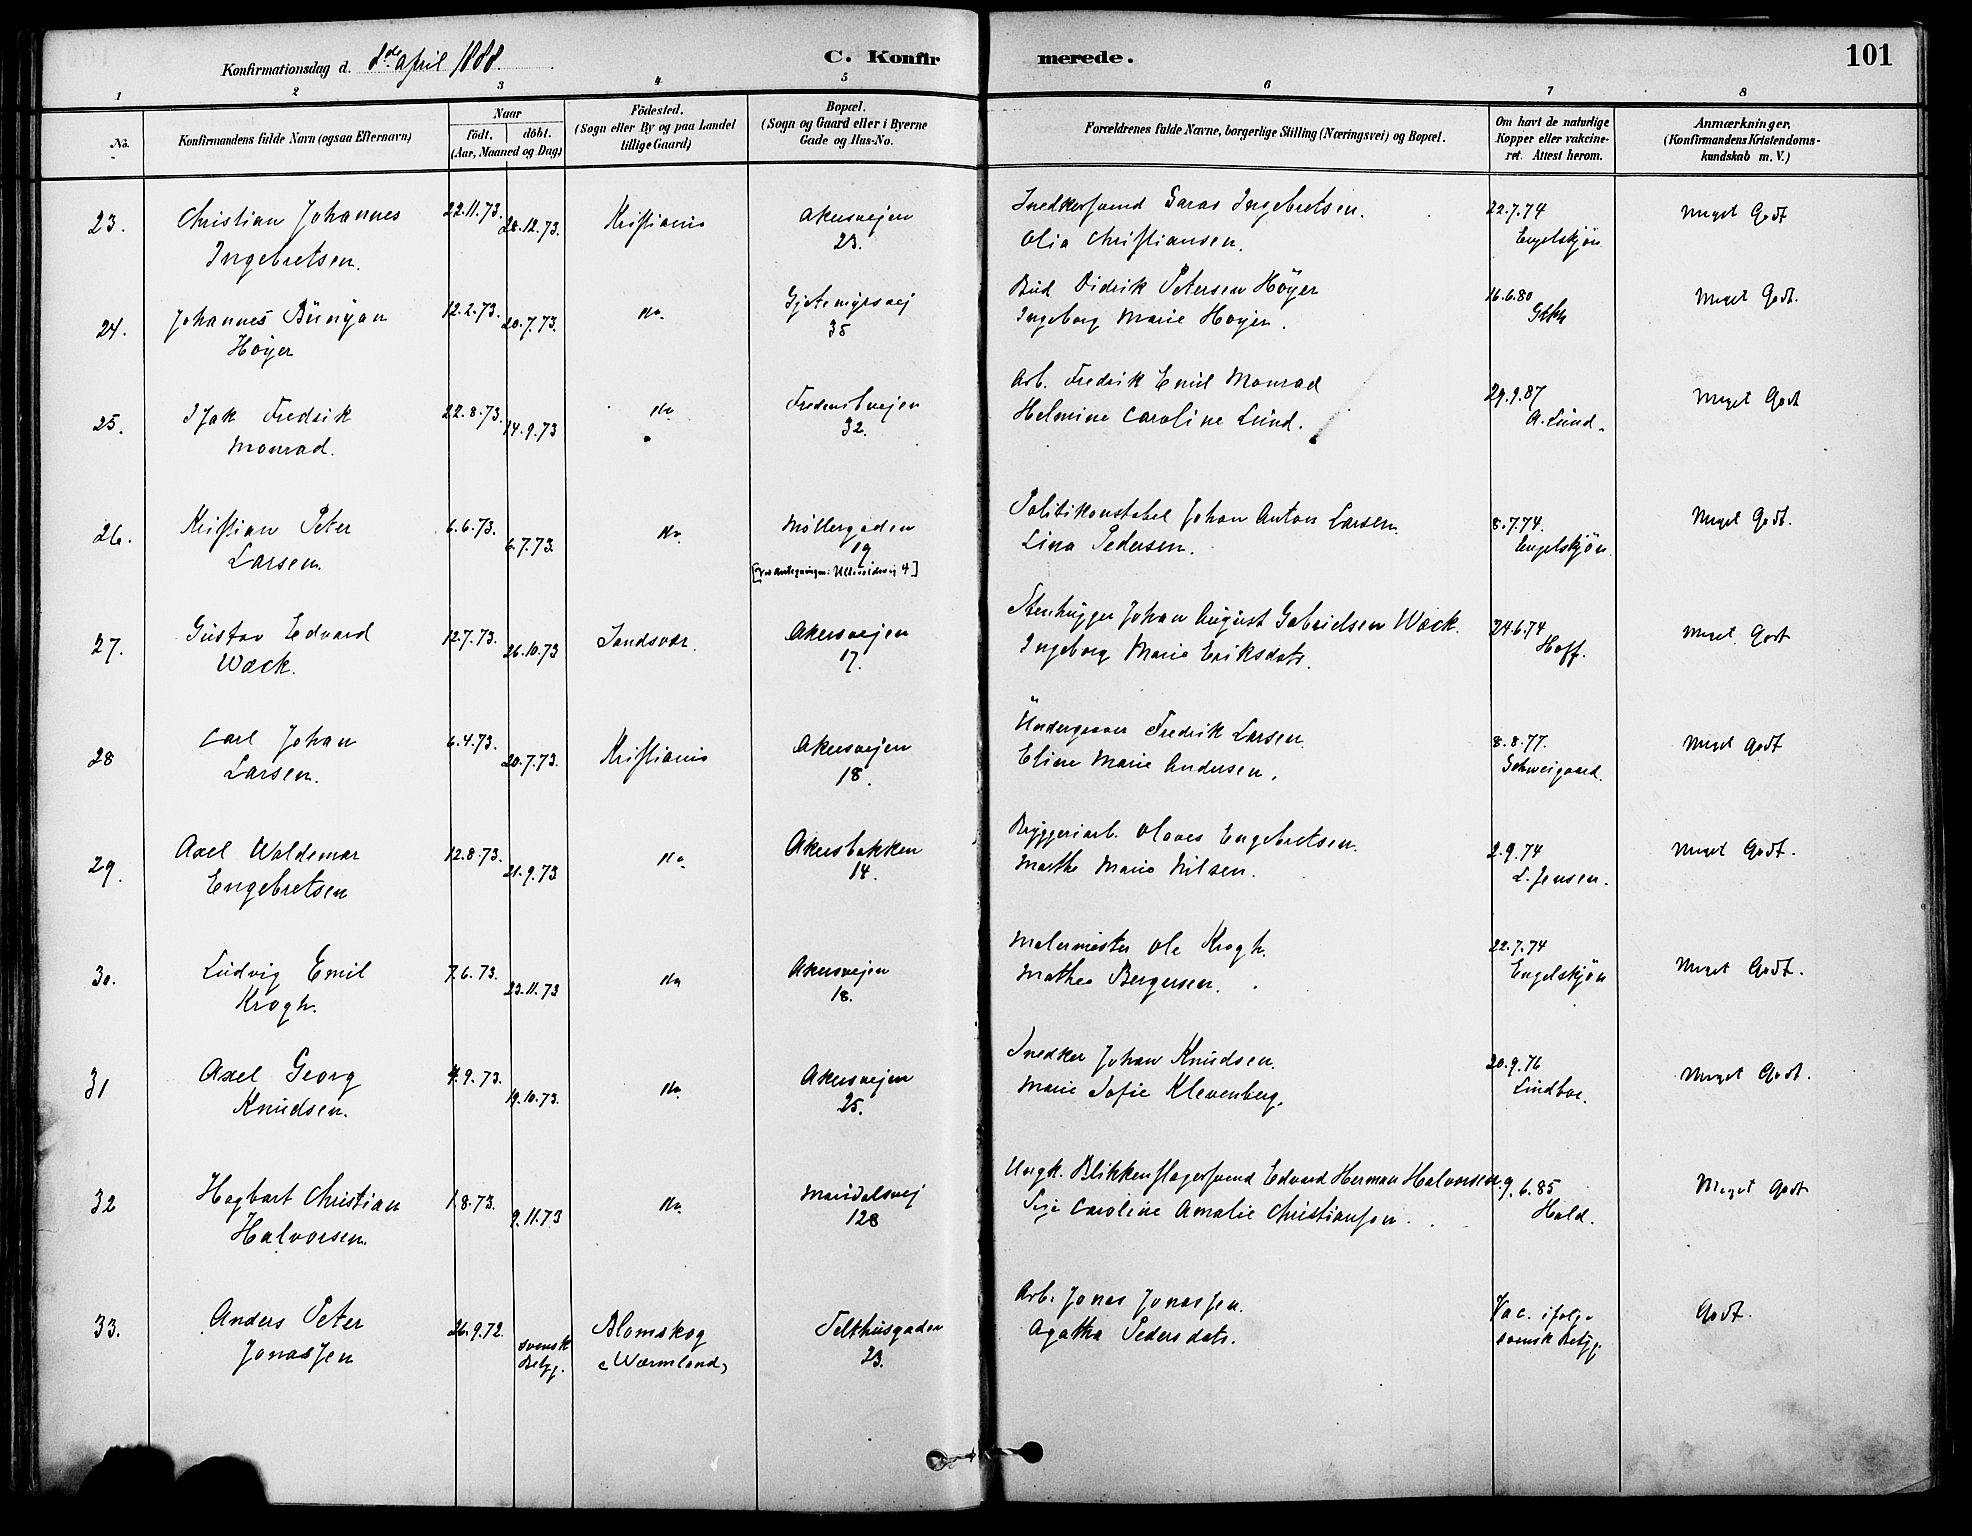 Konfirmationsdag d. 8de April 1888.
C. Konfirmerede.
101
1 2 3 4 5 6 7 8
No.
Konfirmandens fulde Navn (ogsaa Efternavn)
Naar
födt. döbt.
(Aar, Maaned og Dag)
Födested.
(Sogn eller By og paa Landet
tillige Gaard)
Bopæl.
(Sogn og Gaard eller i Byerne
Gade og Hus-No.
Forældrenes fulde Navne, borgerlige Stilling (Næringsvei) og Bopæl.
Om havt de naturlige
Kopper eller vakcine-
ret. Attest herom.
Anmærkninger.
(Konfirmandens Kristendoms-
kundskab m. V.)
23. Christian Johannes 22.11.73. 28.12.73. Kristiania Akersvejen Snedkersvend Ingebretsen. 22.7.74 Meget Godt
Ingebretsen. 23. Olia Christiansen. Engelskjön
24. Johannes Bünyan 12.2.73. 20.7.73. do. Gjetemyrsvej Bud Didrik Petersen Höyer 16.6.80 Meget Godt.
Höyer 35 Ingeborg Marie Hoyer.
25. Isak Fredrik 22.8.73. 14.9.73 do Fredensbvejen Arb. Fredrik Emil Monrad 29.9.87 Meget Godt
Monrad. 32. Helmine Caroline Lund. A. Lund.
26. Kristian Peter 6.6.73. 6.7.73. do. Möllergaden Politikonstabel Johan Anton Larsen. 8.7.74. Meget Godt.
Larsen. 19 Lina Pedersen. Engelskjön.
27. Gustav Edvard 12.7.73. 26.10.73 Sandsvær. Akersvejen Stenhugger Johan August Gabrielsen Wack. 24.6.74 Meget Godt
Wack. 17. Ingeborg Marie Eriksdatr. Hoff.
28 Carl Johan 6.4.73. 20.7.73. Kristiania Akersvejen Fredrik Larsen. 8.8.77. Meget Godt
Larsen. 18. Eline Marie Andersen. Schweigaard.
29. Axel Waldemar 12.8.73. 21.9.73 do Akersbakken Bryggeriarb. Olaves Engebretsen. 2.9.74 Meget Godt.
Engebretsen 14. Marthe Marie Nilsen. L. Jensen.
30. Ludvig Emil 7.6.73. 23.11.73 do Akersvejen Malermester Ole Krogh. 22.7.74 Meget Godt.
Krogh. 18. Mathea Bergersen. Engelskjön
31 Axel Georg 4.9.73. 19.10.73. do. Akersvejen Snedker Johan Knudsen. 20.9.76 Meget Godt.
Knudsen. 25. Marie Sofie Klevenberg. Lindboe.
32 Hagbart Christian 1.8.73. 9.11.73 do. Maridalsvej Ungk. Blikkenslagersvend Edvard Herman Halvorsen 9.6.85 Meget Godt
Halvorsen. 128 Pige Caroline Amalie Christiansen. Hald.
33. Anders Peter 26.9.72. svensk Blomskog Telthusgaden Arb. Jonas Jonassen. Vac. ifølge Godt.
Jonassen Betyg. (Wærmland) 23. Agatha Pedersdatr. svensk Betyg.